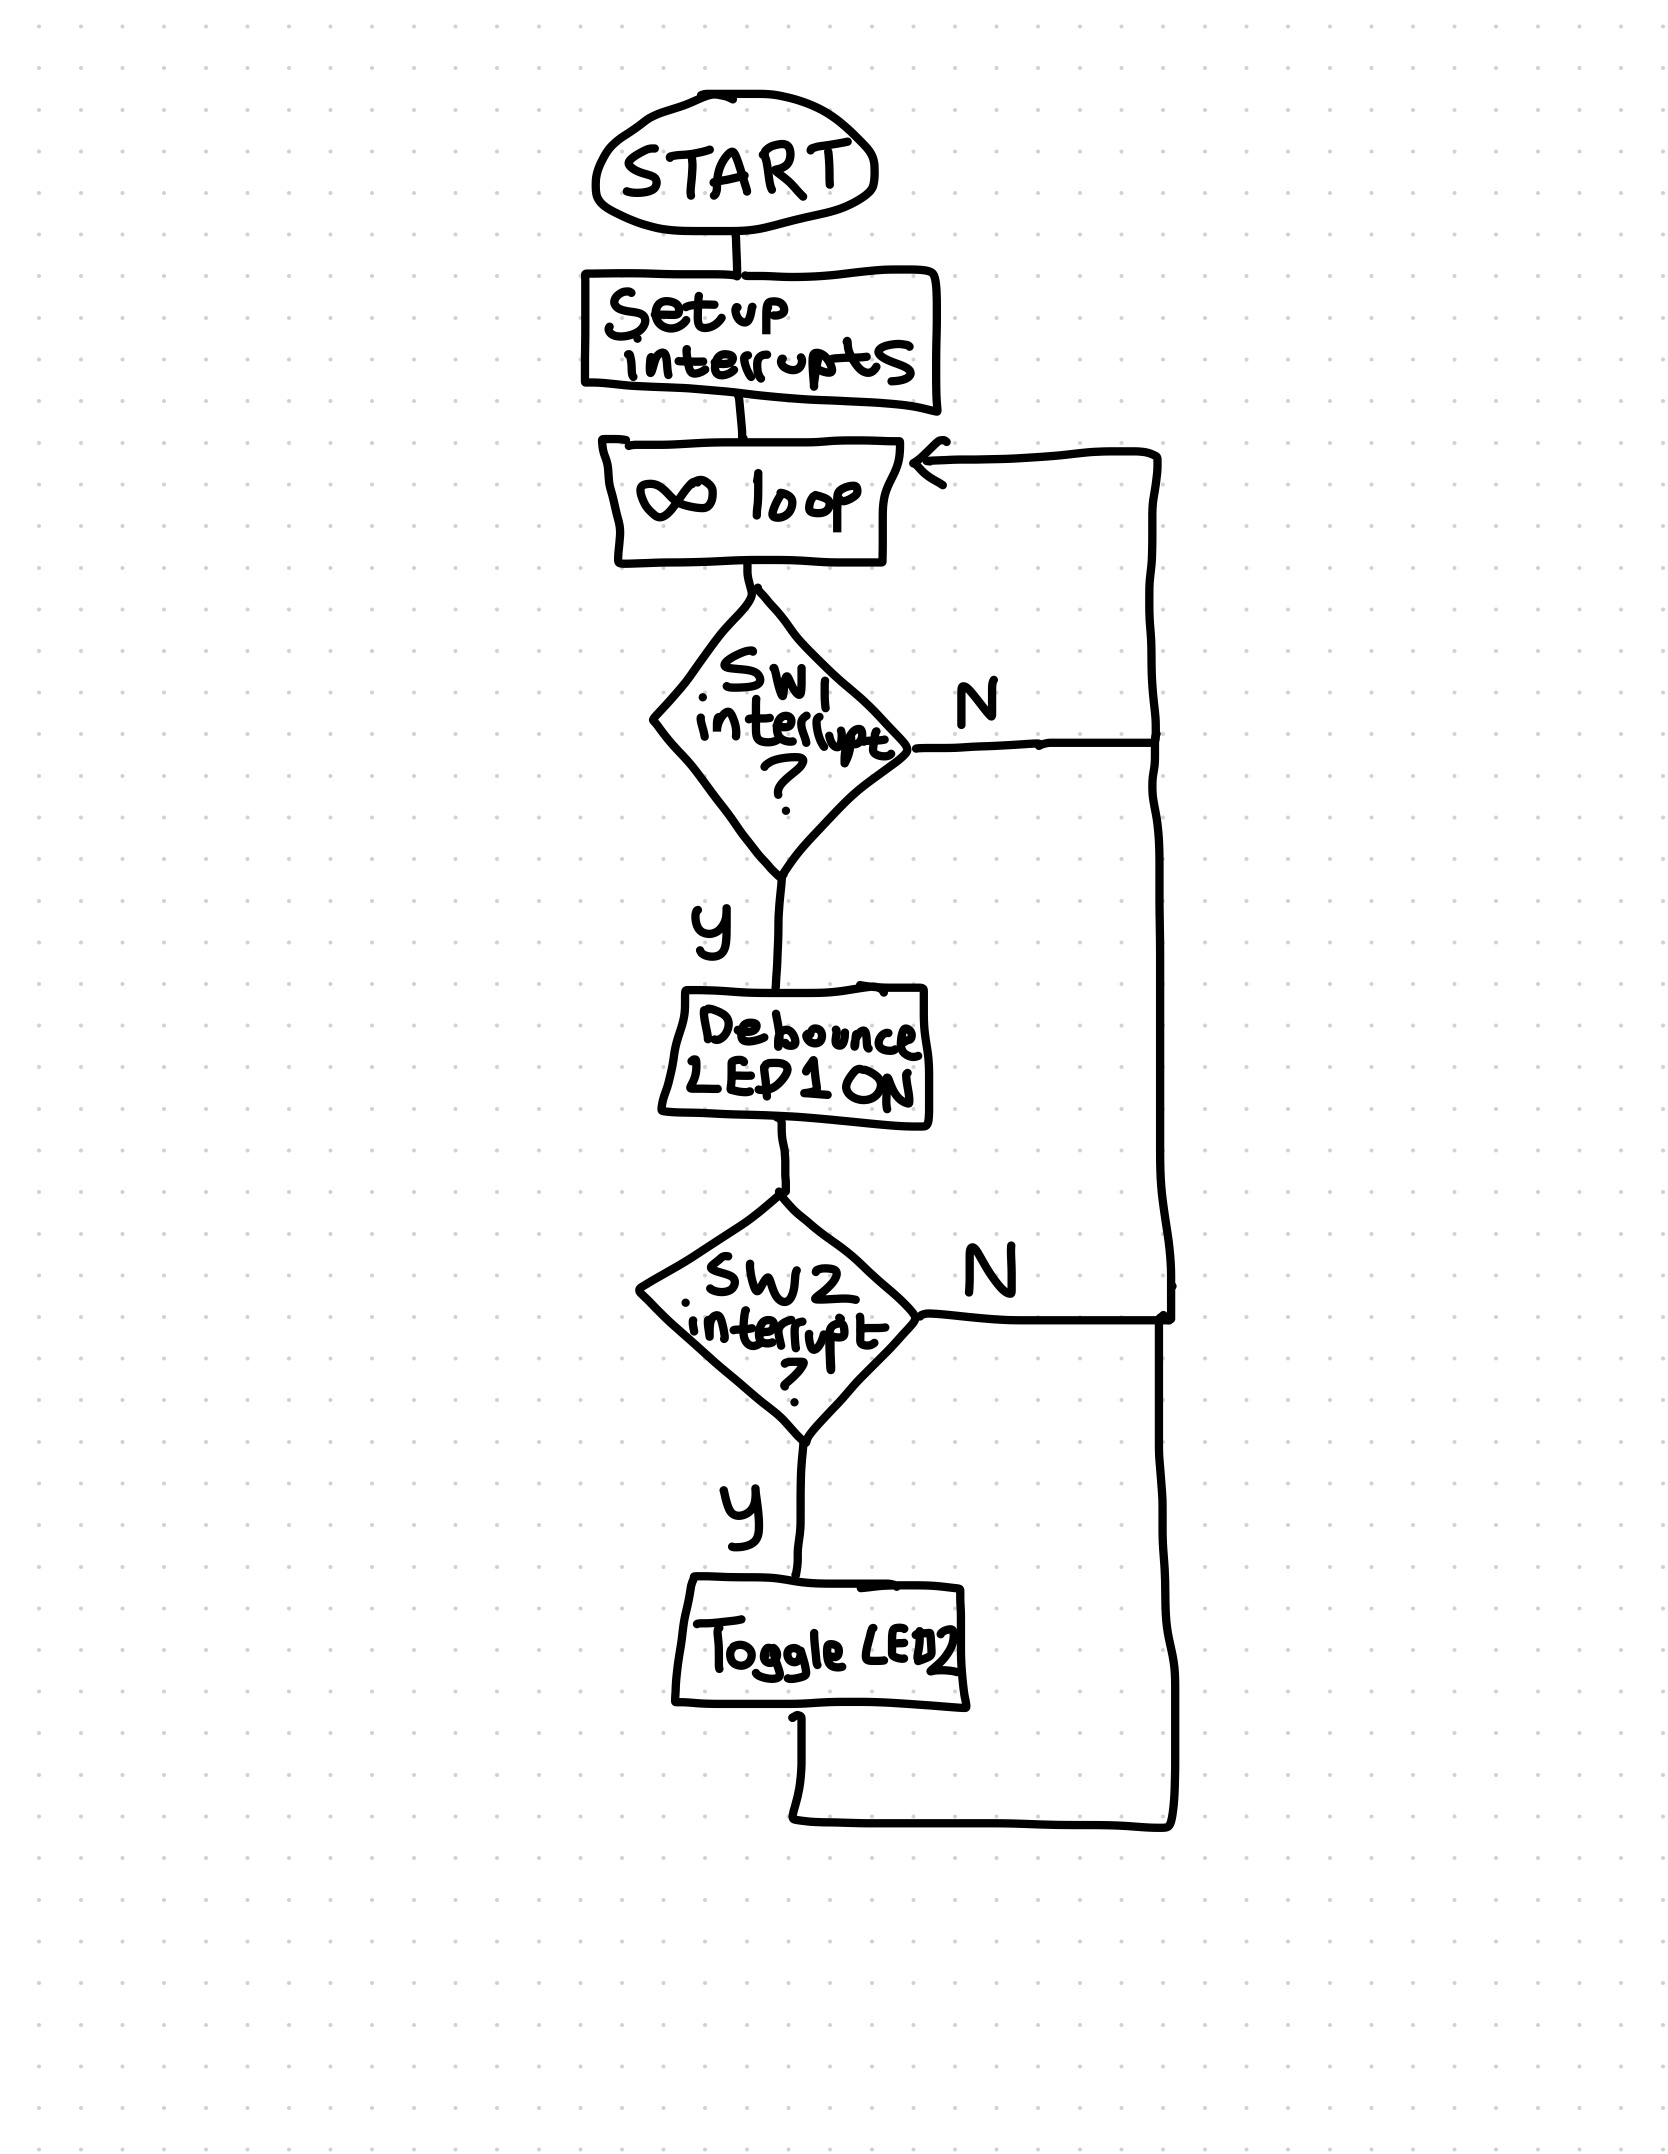 START
Setup
interrupts
∞ loop
SW1
interrupt
?
N
y
Debounce
LED1 ON
SW2
interrupt
?
N
y
Toggle LED2